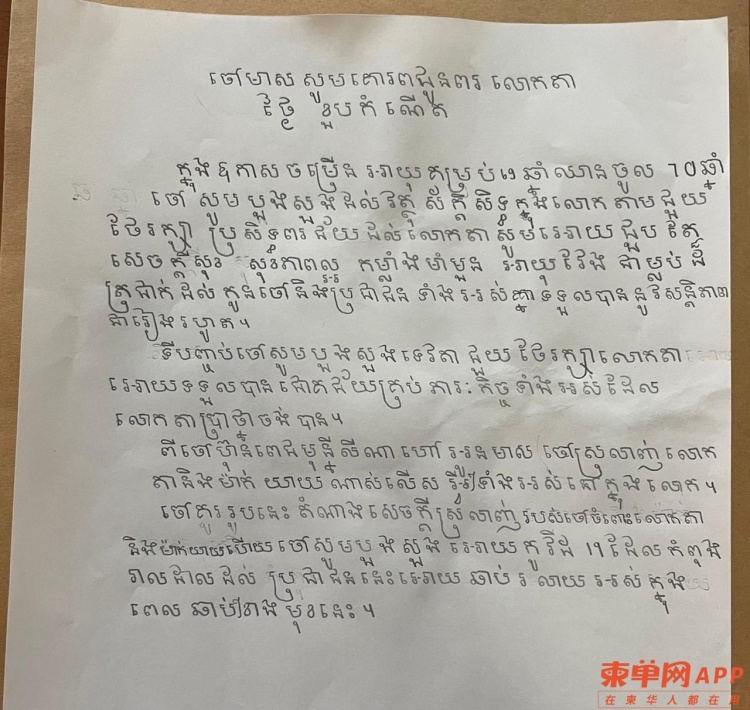 ចៅមាស សូមគោរពជូនពរ លោកតា
ថ្ងៃ ខួបកំណើត
ក្នុងឱកាសចម្រើន អាយុគម្រប់៦៩ ឆ្នាំ ឈានចូល 70 ឆ្នាំ
ចៅ សូមបួងសួងដល់វត្ថុស័ក្តិសិទ្ធក្នុងលោកតាមជួយ
ថែរក្សា ប្រសិទ្ធពរជ័យដល់លោកតាសូមអោយជួបតែ
សេចក្តីសុខ សុខភាពល្អ កម្លាំងមាំមួន អាយុវែង ជាម្លប់ដ៏
ត្រជាក់ដល់កូនចៅនិងប្រជាជន ទាំងអស់គ្នាទទួលបាននូវសន្តិភាព
ជារៀងរហូត។
ទីបញ្ចប់ចៅសូមបួងសួងទេវតា ជួយ ថែរក្សាលោកតា
អោយទទួលបានជោគជ័យគ្រប់ ភារៈកិច្ចទាំងអស់ដែល
លោកតាប្រាថ្នាចង់បាន។
ពីចៅហ៊ុនពេជមុន្នីសីណា ហៅ អូនមាស ចៅស្រលាញ់ លោក
តានិងម៉ាក់យាយណាស់លើស អ្វីៗទាំងអស់នៅក្នុងលោក។
ចៅគូររូបនេះ តំណាងសេចក្តីស្រលាញ់របស់ចៅចំពោះលោកតា
និងម៉ាក់យាយហើយចៅសូមបួងសួង អោយកូវីដ 19 ដែលកំពុង
រាលដាលដល់ ប្រជាជននេះអោយឆាប់រលាយអស់ក្នុង
ពេល ឆាប់ៗខាងមុខនេះ។
柬单网APP
在柬华人都在用